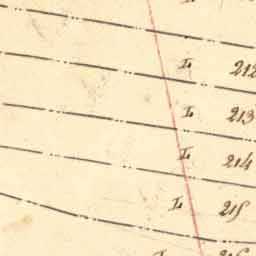 L 212
L 213
L 214
L 215
L